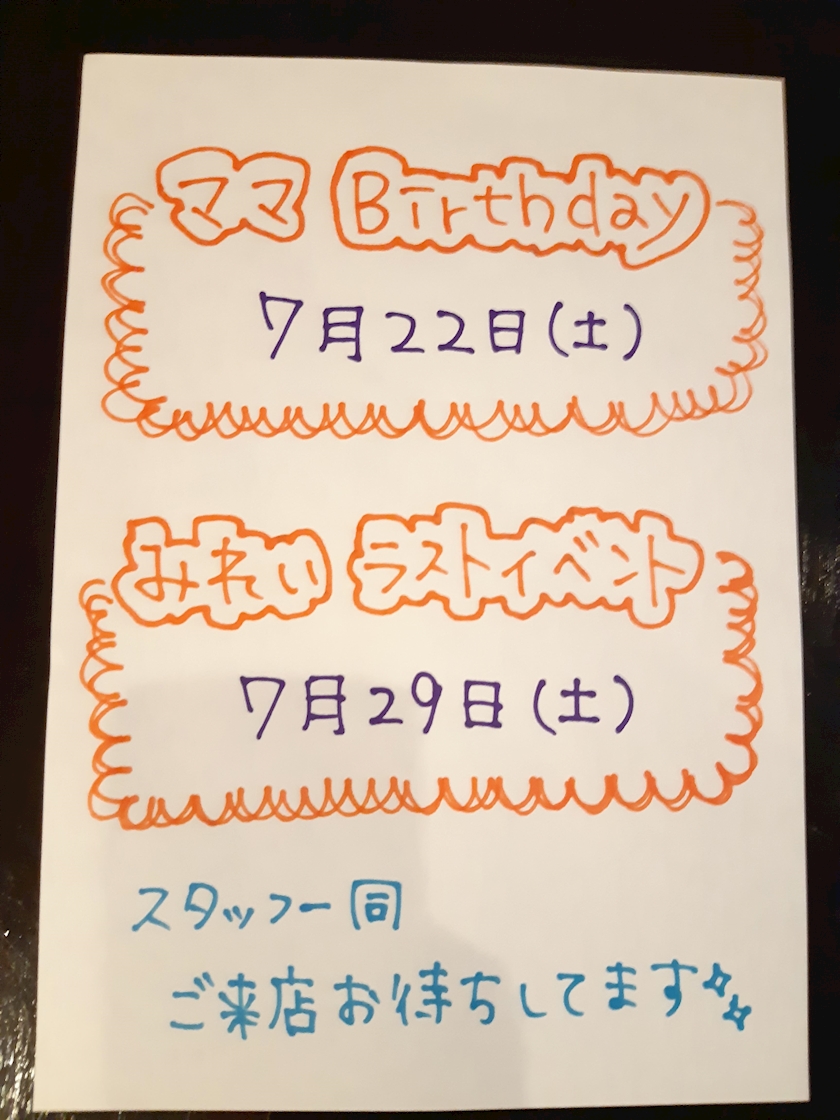 ママ Birthday
7月22日(土)
みれい ラストイベント
7月29日(土)
スタッフ一同
ご来店お待ちしてます